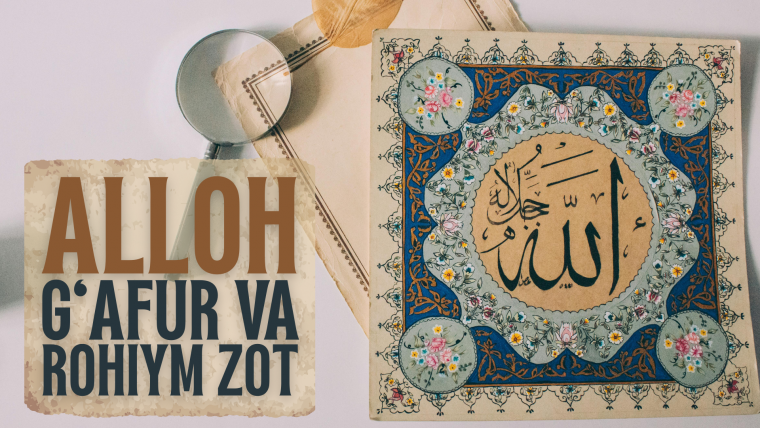 ALLOH
G‘AFUR VA
ROHIYM ZOT
الله
جل جلاله